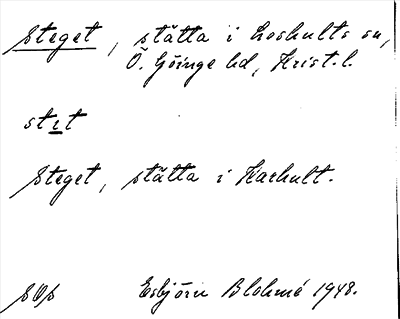 Steget, stätta i Loshults sn,
Ö. Göinge hd, Krist. l.
stɛt
Steget, stätta i Harhult.
SOp Esbjörn Blohmé 1948.